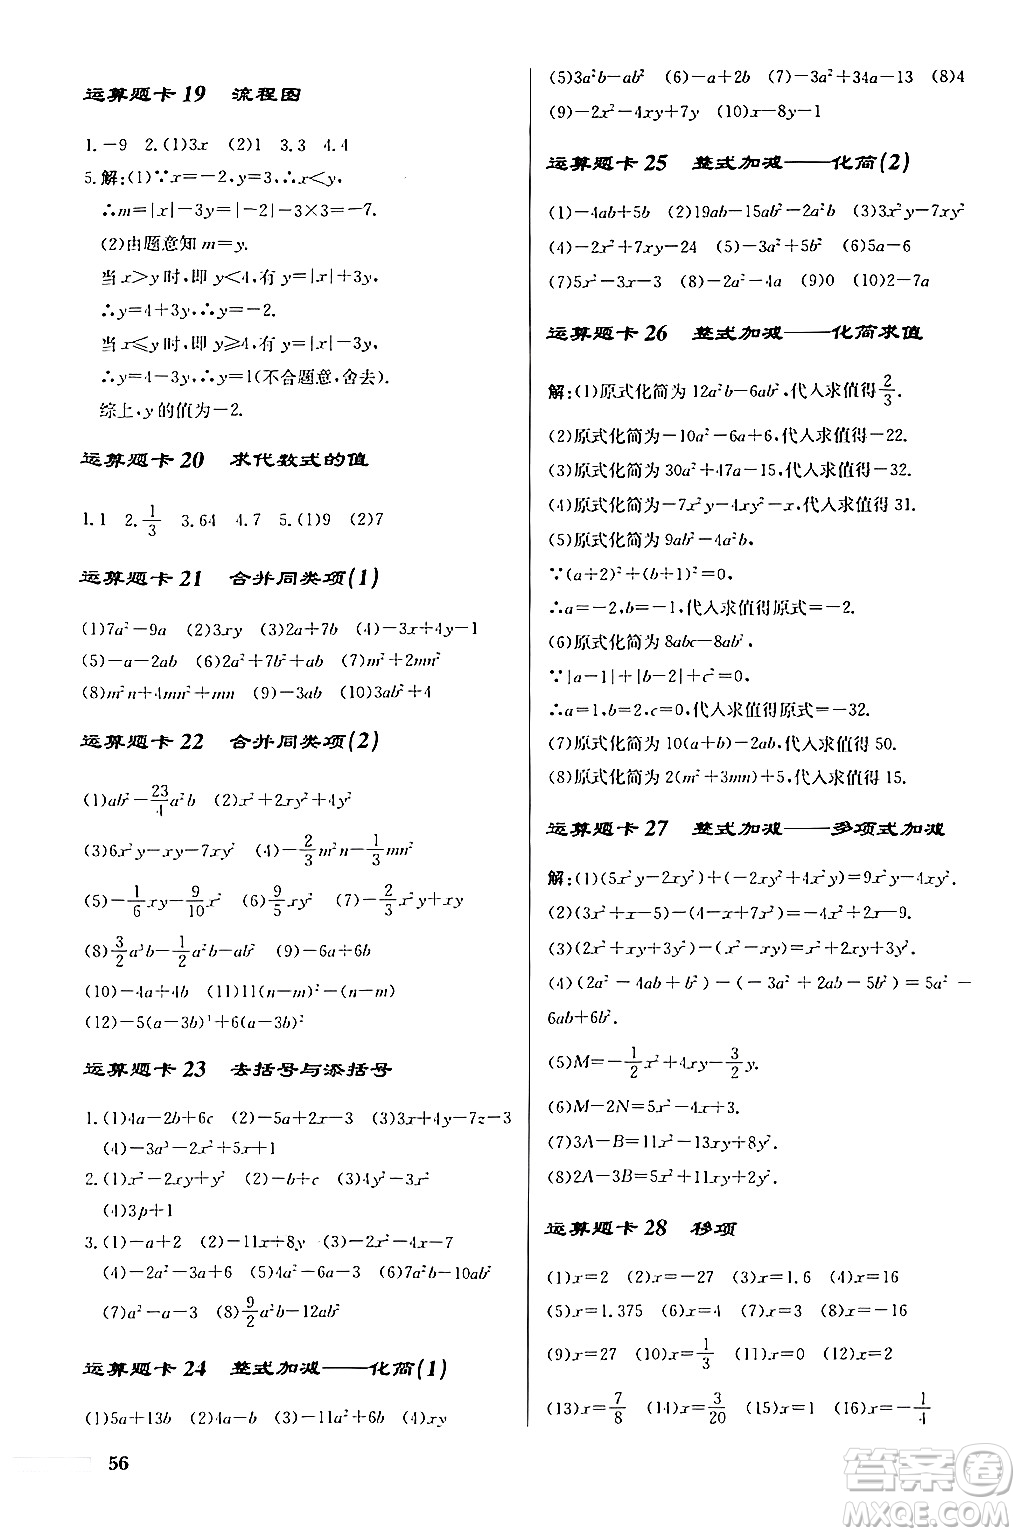 运算题卡 19 流程图
1.－9 2.(1)3x (2)1 3.3 4.4
5.解:(1)∵x=－2,y=3,∴x<y,
∴m=|x|－3y=|－2|－3×3=－7.
(2)由题意知 m=y.
当 x>y 时,即 y<4,有 y=|x|+3y,
∴y=4+3y,∴y=－2.
当 x≤y 时,即 y≥4,有 y=|x|－3y,
∴y=4－3y,∴y=1(不合题意,舍去).
综上,y 的值为－2.
运算题卡 20 求代数式的值
1.1 2.1/3 3.64 4.7 5.(1)9 (2)7
运算题卡 21 合并同类项(1)
(1)7a²－9a (2)3xy (3)2a+7b (4)－3x+4y－1
(5)－a－2ab (6)2a²+7b²+ab (7)m²+2mn²
(8)m²n+4mn²+mn (9)－3ab (10)3x²+4
运算题卡 22 合并同类项(2)
(1)ab²－23/4 a²b (2)x²+2xy²+y²
(3)6x²y－xy－7xy² (4)－2/3 m²n－1/3 mn²
(5)－1/6 xy－9/10 x² (6)9/5 xy² (7)－2/3 x²y+xy
(8)3/2 a³b－1/2 a²b－ab² (9)－10x－5
(10)－4a+4b (11)11(n－m)²+(n－m)
(12)－5(a－3b)⁴+6(a－3b)²
运算题卡 23 去括号与添括号
1.(1)4a－2b+6c (2)－5a+2x－3 (3)3x+4y－7z－3
(4)－3a³－2x²+5x－1
2.(1)x²－2xy+y² (2)－b+c (3)6x－3x²
(4)3p+1
3.(1)－a+2 (2)－11x+8y (3)－2x²+4x－7
(4)－2a²－3a (5)4a²－3a－3 (6)2a²b－10ab²
(7)a²－a－3 (8)9/2 a²b－12ab²
运算题卡 24 整式加减——化简(1)
(1)5a+13b (2)－b²+2ab (3)－11a²+8 (4)xy
56
(5)3a²b－ab² (6)－a+2b (7)－3a²+4a－13 (8)4
(9)－2x²－4xy+7y (10)x－8y－1
运算题卡 25 整式加减——化简(2)
(1)－4ab+5b (2)19ab－15ab²－2a²b (3)3x²y－7xy²
(4)－2x²+7y－24 (5)－3a²+5b² (6)5a－6
(7)5x²－3x－3 (8)－2a²－4a (9)0 (10)2－7a
运算题卡 26 整式加减——化简求值
解:(1)原式化简为 12a²b－6ab²,代入求值得2/3.
(2)原式化简为－10a²－6a+6,代入求值得－22.
(3)原式化简为 30a²+47a－15,代入求值得－32.
(4)原式化简为－7x²y－4xy²－x,代入求值得 31.
(5)原式化简为 9ab²－4a²b.
∵(a+2)²+(b+1)²=0,
∴a=－2,b=－1,代入求值得原式=－2.
(6)原式化简为 8abc－8ab².
∵|a－1|+|b－2|+c²=0,
∴a=1,b=2,c=0,代入求值得原式=－32.
(7)原式化简为 10(a+b)－2ab,代入求值得 50.
(8)原式化简为 2(m²+3mn)+5,代入求值得 15.
运算题卡 27 整式加减——多项式加减
解:(1)(5x²y－2xy²)+(－2xy²+4x²y)=9x²y－4xy².
(2)(3x²+x－5)－(4－x+7x²)=－4x²+2x－9.
(3)(2x²+xy+3y²)－(x²－xy)=x²+2xy+3y².
(4)(2a²－4ab+b²)－(－3a²+2ab－5b²)=5a²－
6ab+6b².
(5)M=－1/2 x²+4xy－3/2 y².
(6)M－2N=5x²－4x+3.
(7)3A－B=11x²－13xy+8y².
(8)2A－3B=5x²+11xy+2y².
运算题卡 28 移项
(1)x=2 (2)x=－27 (3)x=1.6 (4)x=16
(5)x=1.375 (6)x=4 (7)x=3 (8)x=－16
(9)x=27 (10)x=1/3 (11)x=0 (12)x=2
(13)x=7/8 (14)x=3/20 (15)x=1 (16)x=－1/4
答案圈
MXQE.COM